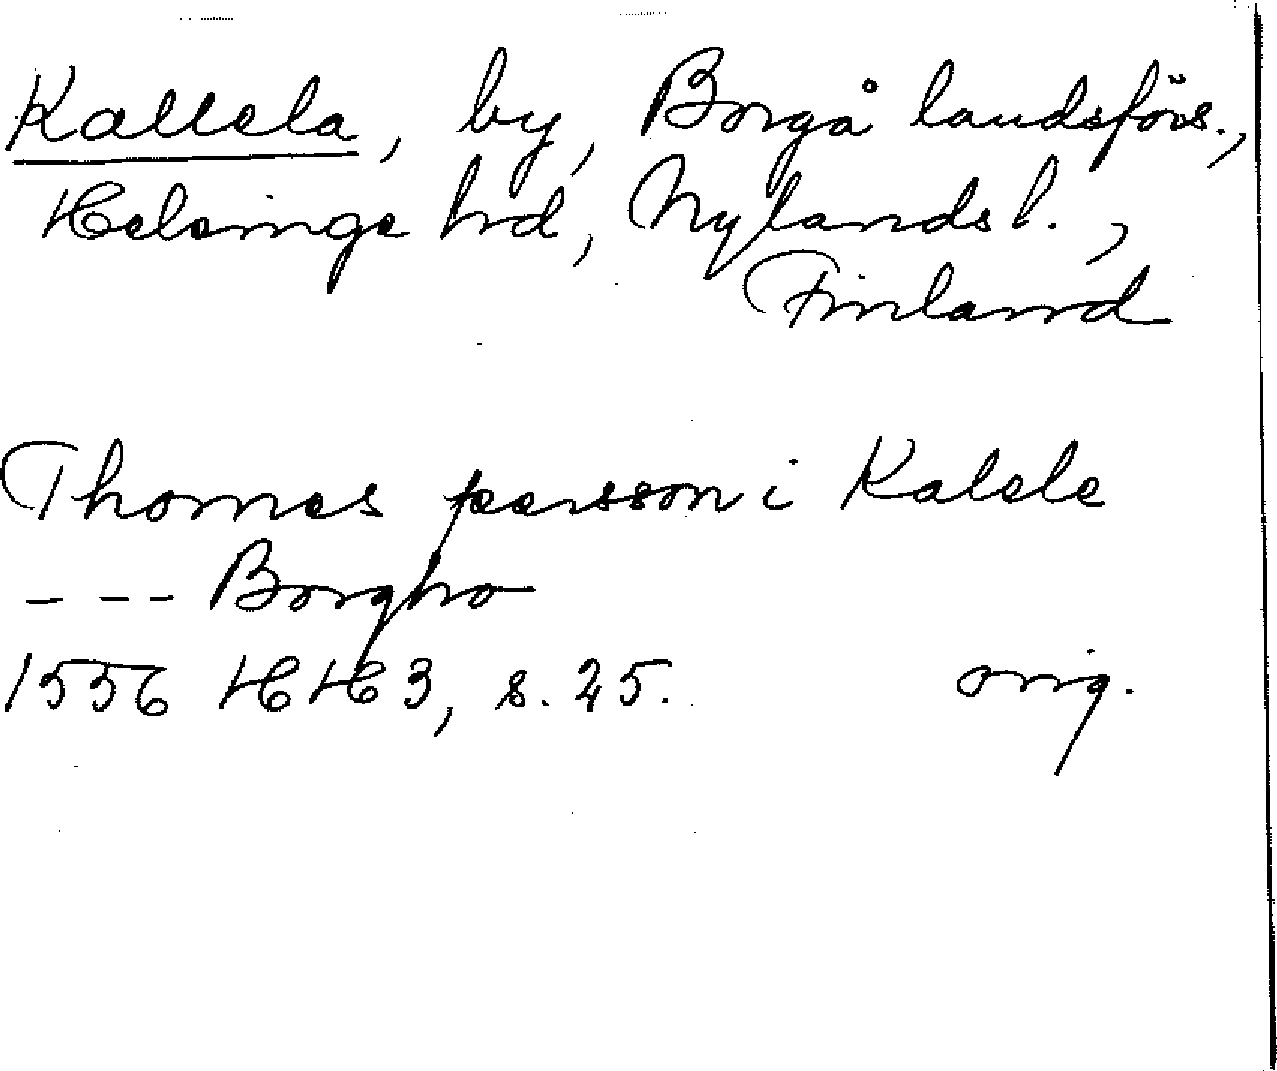 Kallela, by, Borgå landsförs.,
Helsinge hrd, Nylands l.,
Finland
Thomas persson i Kalele
--- Borgho
1556 HH 3, s. 25. orig.